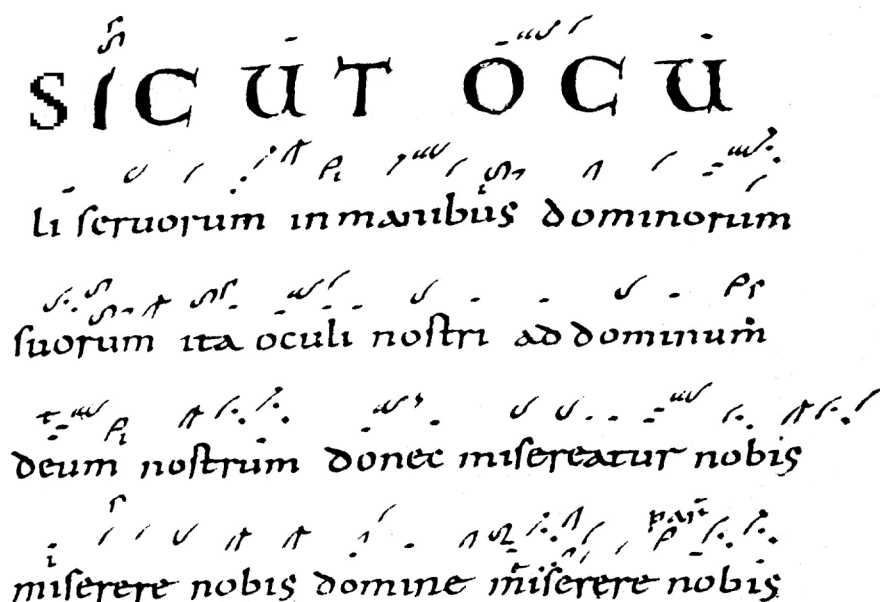 SICUT OCU
li seruorum in manibus dominorum
suorum ita oculi nostri ad dominum
deum nostrum donec misereatur nobis
miserere nobis domine miserere nobis